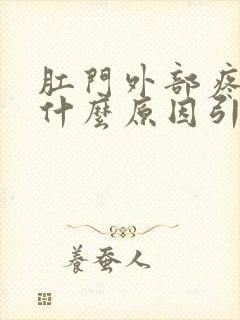 肛門外部疼
什麼原因引
養蚕人